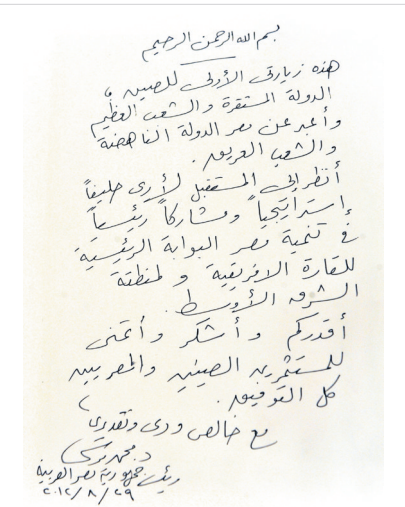 بسم الله الرحمن الرحيم
هذه زيارتى الأولى للصين،
الدولة المستقرة والشعب العظيم
وأعبر عن مصر الدولة الناهضة
والشعب العريق.
أنظر إلى المستقبل لأرى حليفاً
إستراتيجياً ومشاركاً رئيسياً
فى تنمية مصر البوابة الرئيسية
للقارة الافريقية ولمنطقة
الشرق الأوسط.
أقدركم وأشكر وأتمنى
للمستثمرين الصينين والمصريين
كل التوفيق.
مع خالص ودى وتقديرى
د. محمد مرسى
رئيس جمهورية مصر العربية
٢٠١٢/٨/٢٩